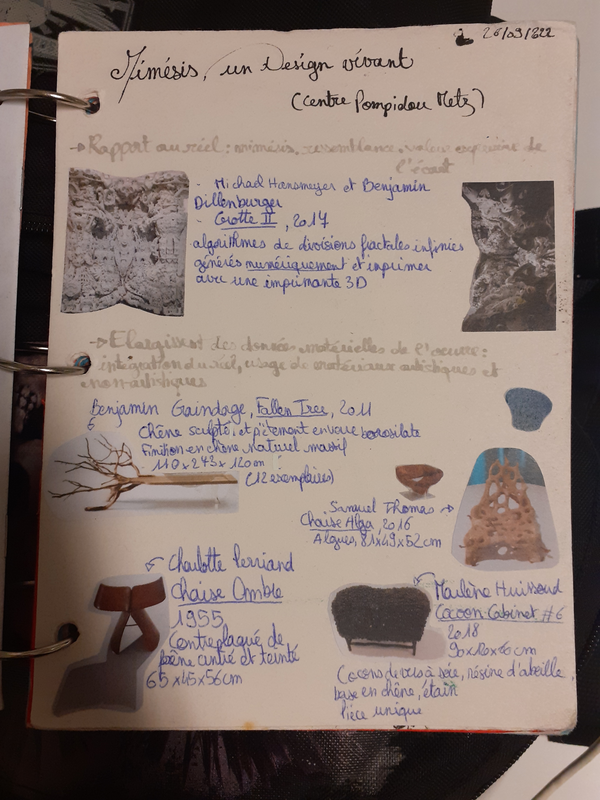 26/09/22
Mimésis, un Design vivant
(Centre Pompidou Metz)
→ Rapport au réel : mimésis, ressemblance, valeur expressive de
l'écart
- Michael Hansmeyer et Benjamin
Dillenburger
- Grotte II, 2017
algorithmes de divisions fractales infinies
générés numériquement et imprimer
avec une imprimante 3D
→ Elargissent des données matérielles de l'oeuvre :
intégration du réel, usage de matériaux artistiques et
non-artistiques
Benjamin Graindage, Fallen Tree, 2011
Chêne sculpté, et piètement en verre borosilate
Finition en chêne naturel massif
110 x 243 x 120 cm
(12 exemplaires)
Samuel Thomas →
Chaise Alga, 2016
Algues, 81x49x52cm
Charlotte Perriand
Chaise Ombre
1955
Contreplaqué de
frêne cintré et teinté
65 x 45 x 56cm
Marlène Huissoud
Cocoon Cabinet #6
2018
Cocons de vers à soie, résine d'abeille,
base en chêne, étain
Pièce unique